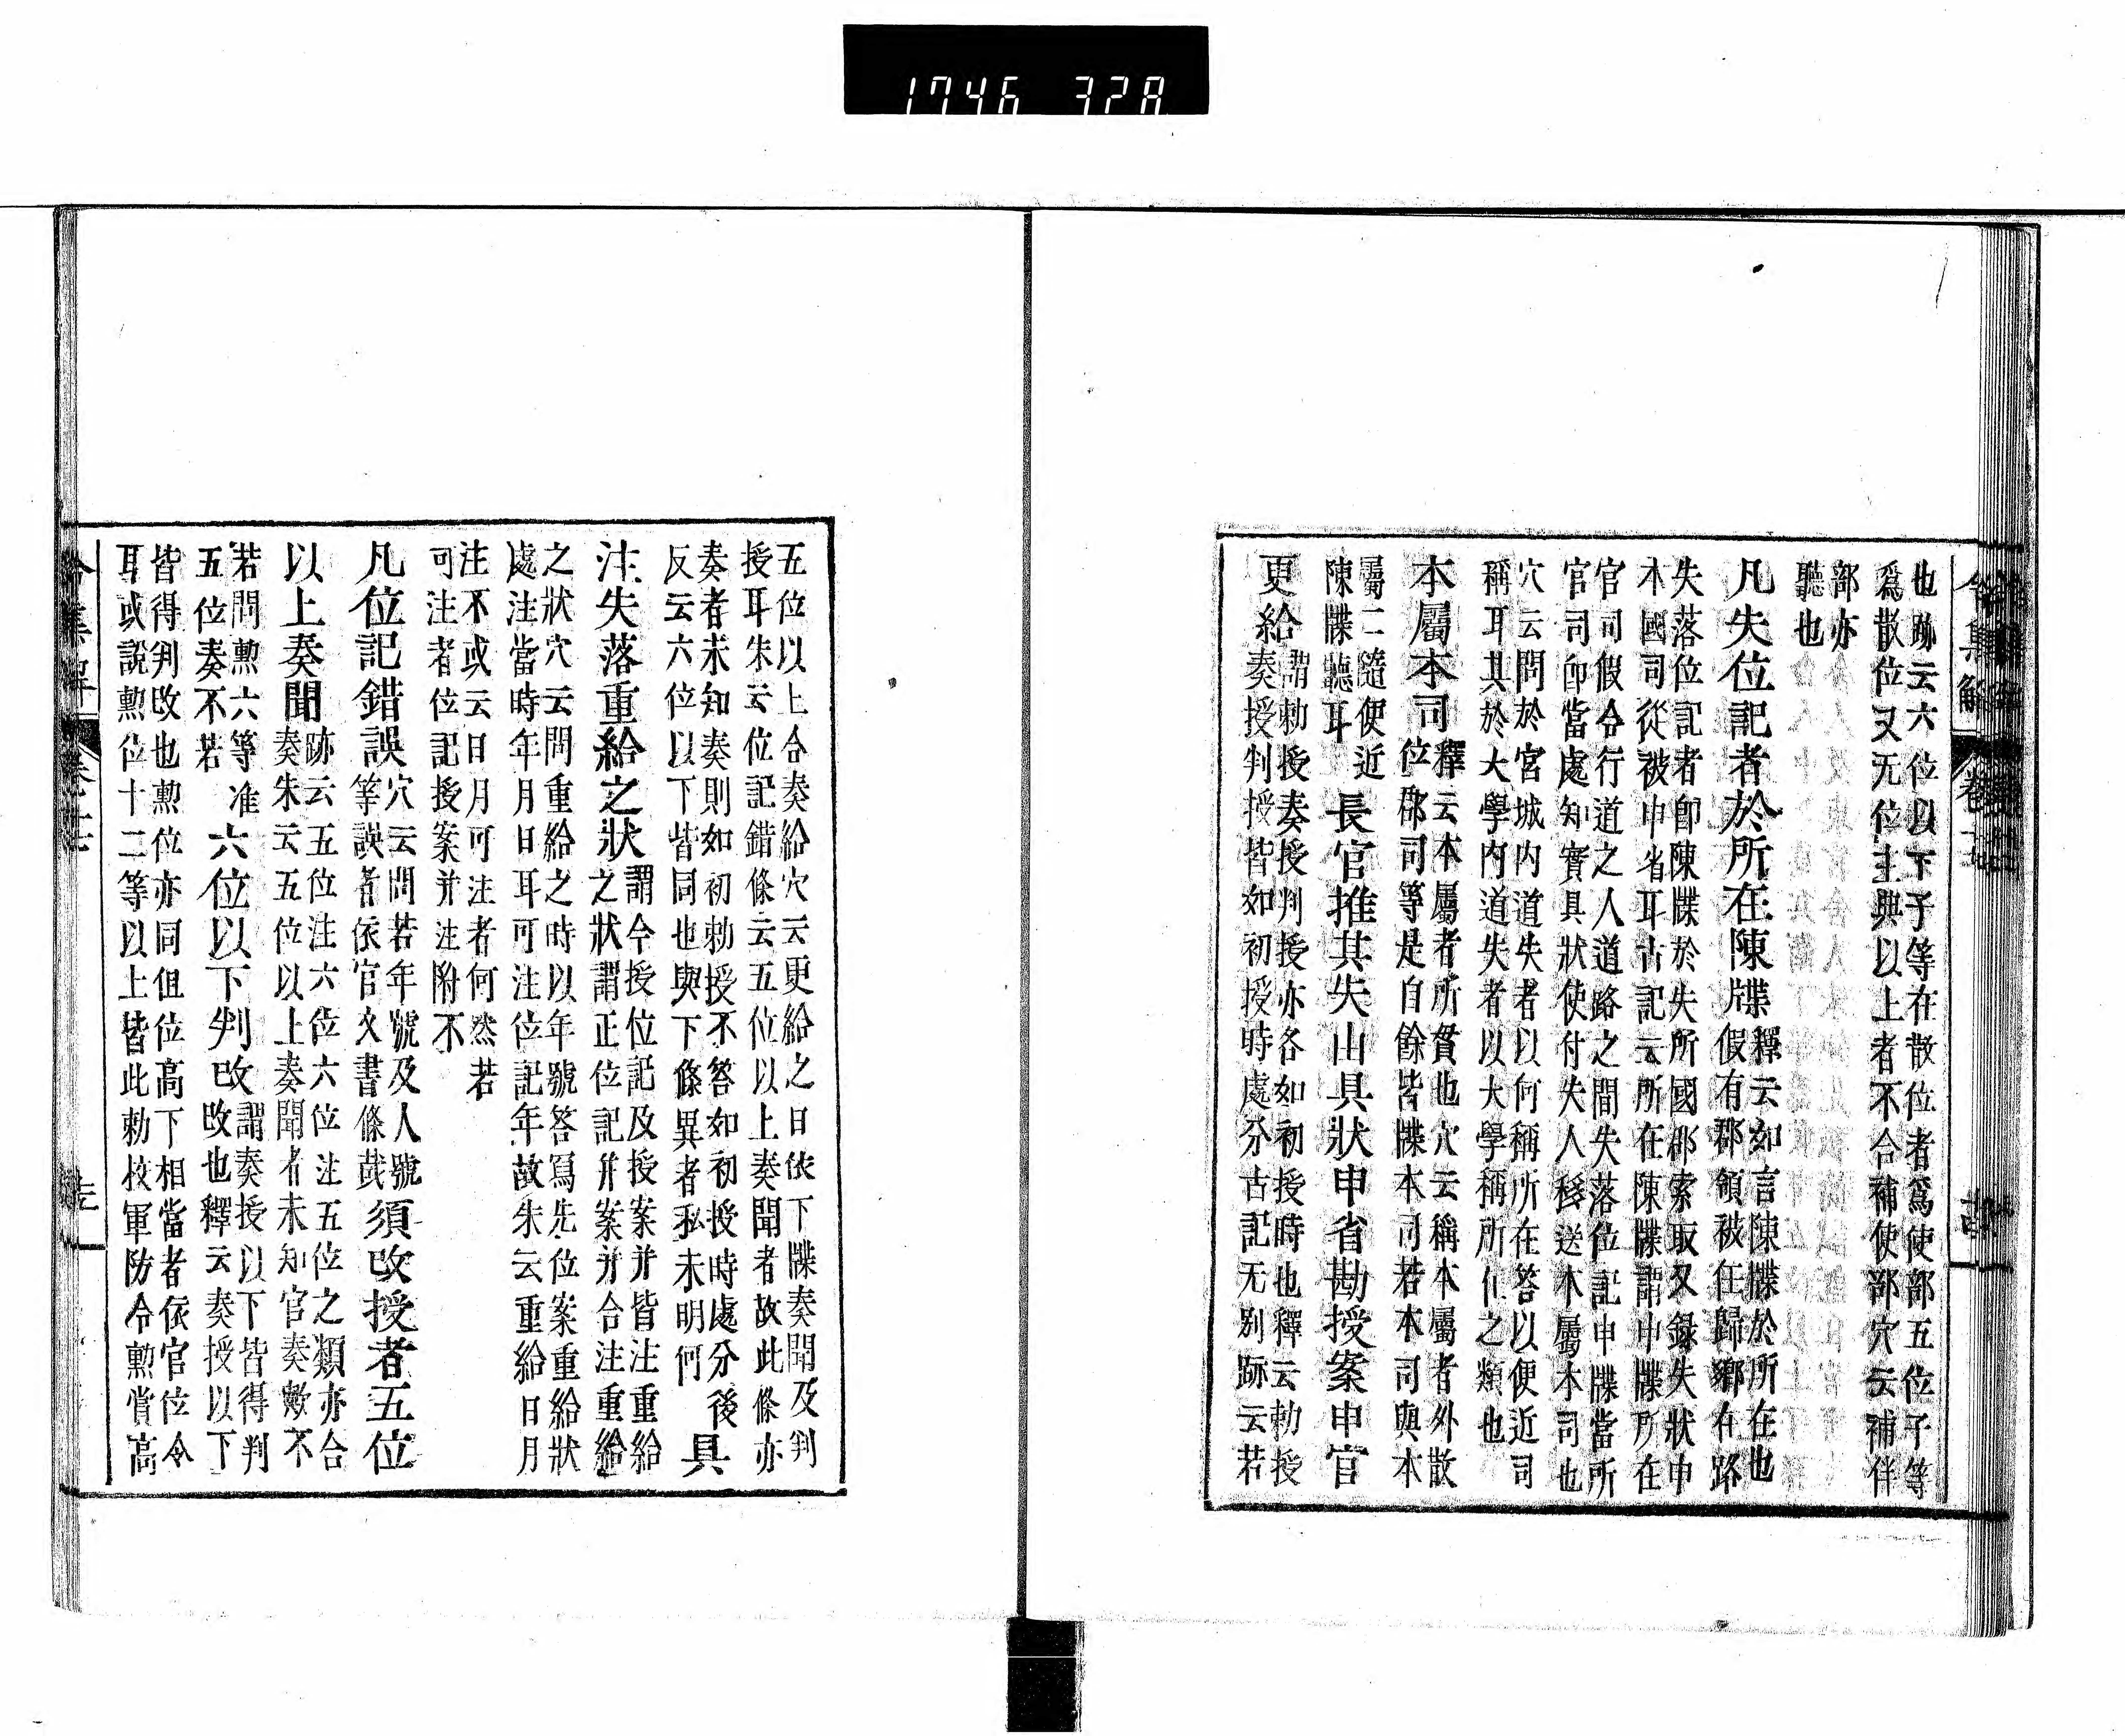 1746 328
也跡云六位以下子等在散位者爲使部五位子等
爲散位又无位主典以上者不合補使部穴云補伴
部亦
聽也
凡失位記者於所在陳牒
釋云如言陳牒於所在也
假有郡領被任歸鄉在路
失落位記者卽陳牒於失所國郡索取又錄失狀申
本國司從被申省耳古記云所在陳牒謂申牒所在
官司假令行道之人道路之間失落位記申牒當所
官司卽當處知實具狀使付失人移送本屬本司也
穴云問於宮城内道失者以何稱所在答以便近司
稱耳其於大學内道失者以大學稱所仕之類也
本屬本司
釋云本屬者所貫也穴云稱本屬者外散
位郡司等是自餘皆牒本司若本司與本
屬二隨便近
陳牒聽耳
長官推其失由具狀申省勘授案申官
更給
謂勅授奏授判授亦各如初授時也釋云勅授
奏授判授皆如初授時處分古記无別跡云若
五位以上合奏給穴云更給之日依下牒奏聞及判
授耳朱云位記錯條云五位以上奏聞者故此條亦
奏者未知奏則如初勅授不答如初授時處分後
反云六位以下皆同也與下條異者私未明何
具
注失落重給之狀
謂今授位記及授案并皆注重給
之狀謂正位記并案并合注重給
之狀穴云問重給之時以年號答寫先位案重給狀
處注當時年月日耳可注位記年故朱云重給日月
注不或云日月可注者何然若
可注者位記授案并注附不
凡位記錯誤
穴云問若年號及人號
等誤者依官文書條哉
須改授者五位
以上奏聞
跡云五位注六位六位注五位之類亦合
奏朱云五位以上奏聞者未知官奏歟不
若問勲六等准
五位奏不若
六位以下判改
謂奏授以下皆得判
改也釋云奏授以下
皆得判改也勲位亦同但位高下相當者依官位令
耳或說勲位十二等以上皆此勅校軍防令勲賞高